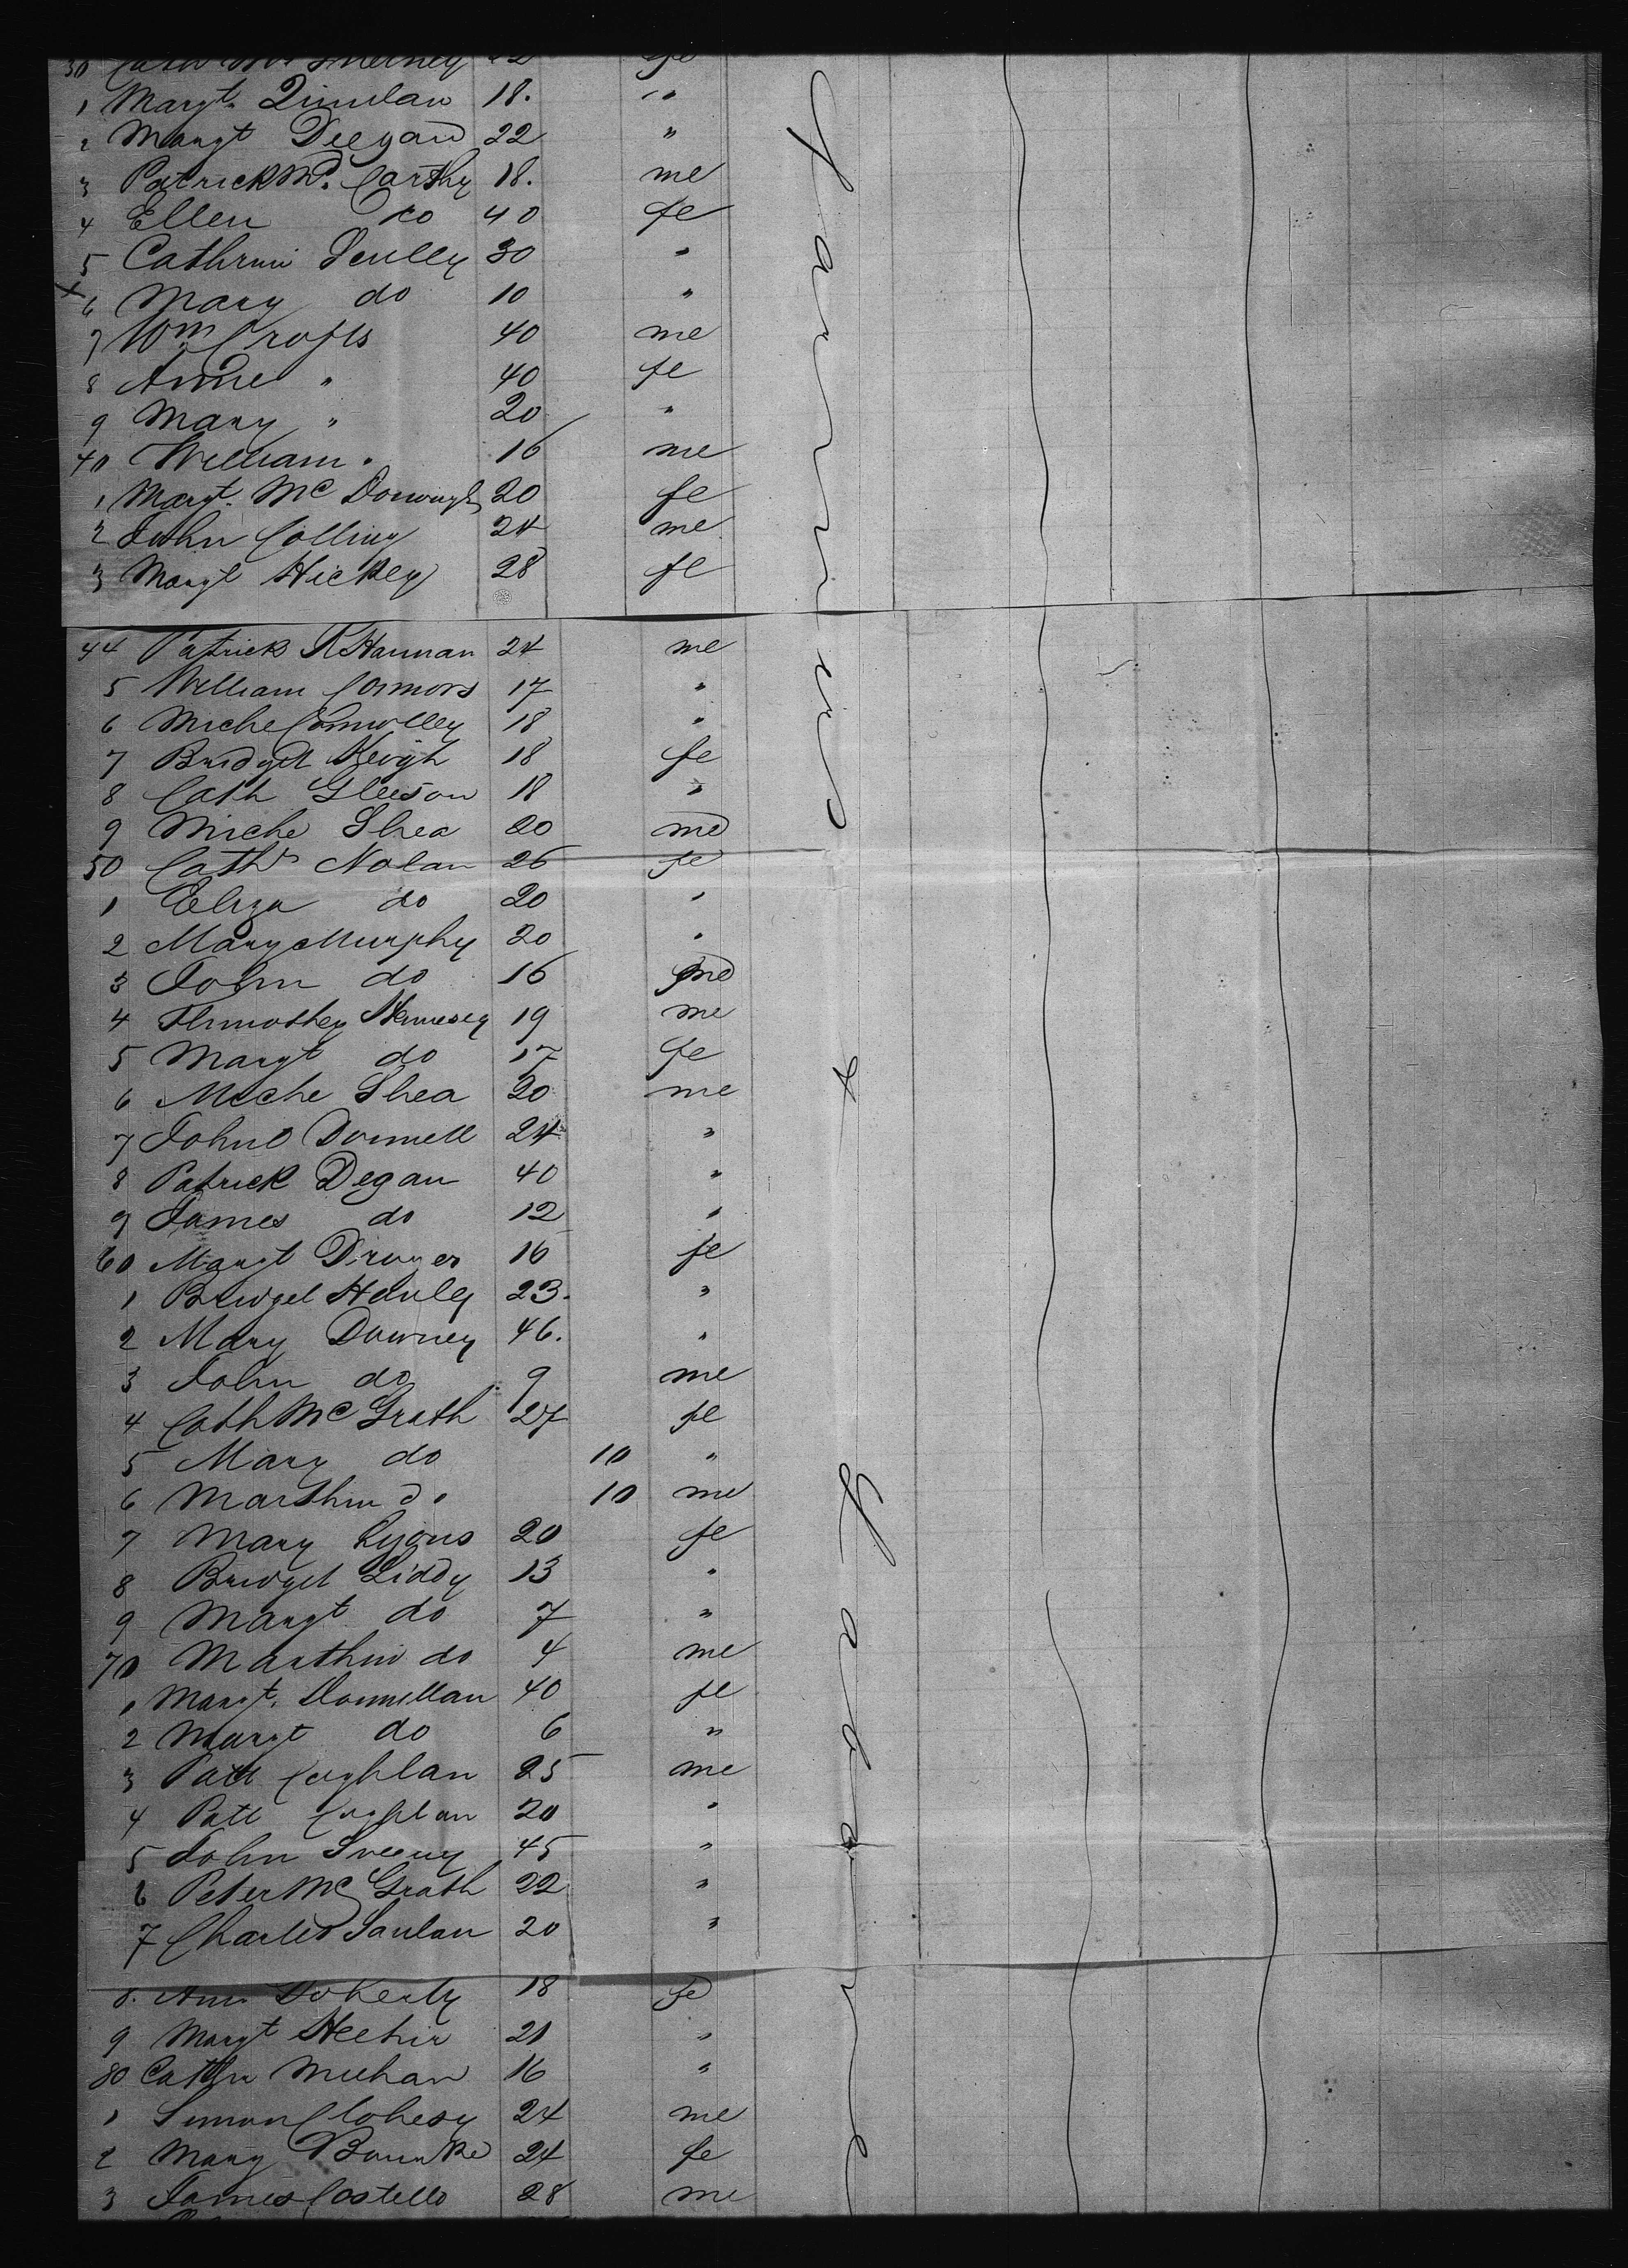 30 Cath Mc Inerney 22 fe
1 Margt. Quinlan 18. "
2 Margt Deegan 22 "
3 Patrick Mc. Carthy 18. me
4 Ellen do 40 fe
5 Cathrin Scully 30 "
x 6 Mary do 10 "
7 Wm Crofts 40 me
8 Anne " 40 fe
9 Mary " 20 "
40 William " 16 me
1 Margt. Mc Donough 20 fe
2 John Colling 24 me
3 Margt Hickey 28 fe
44 Patrick Hannan 24 me
5 William Connors 17 "
6 Miche Connolley 18 "
7 Bridget Keogh 18 fe
8 Cath Gleeson 18 "
9 Miche Shea 20 me
50 Cath Nolan 26 fe
1 Eliza do 20 "
2 Mary Murphy 20 "
3 John do 16 me
4 Thimothey Hennesey 19 me
5 Margt do 17 fe
6 Miche Shea 20 me
7 John O Donnell 24 "
8 Patrick Degan 40 "
9 James do 12 "
60 Margt 16 fe
1 Bridget Hanley 23. "
2 Mary Downey 46. "
3 John do 9 me
4 Cath Mc Grath 27 fe
5 Mary do 10 "
6 Marthin do 10 me
7 Mary Lyons 20 fe
8 Bridget Liddy 13 "
9 Margt do 7 "
70 Marthin do 4 me
1 Margt. Donnellan 40 fe
2 Margt do 6 "
3 Patt Coghlan 25 me
4 Patt Coghlan 20 "
5 John Sweeny 45 "
6 Peter Mc Grath 22 "
7 Charles 20 "
8. Ann Dokerty 18 fe
9 Margt Heehir 21 "
80 Cathr Meehan 16 "
1 Simon Clohesy 24 me
2 Mary Bourke 24 fe
3 James Costello 28 me
Farmers & Laborers